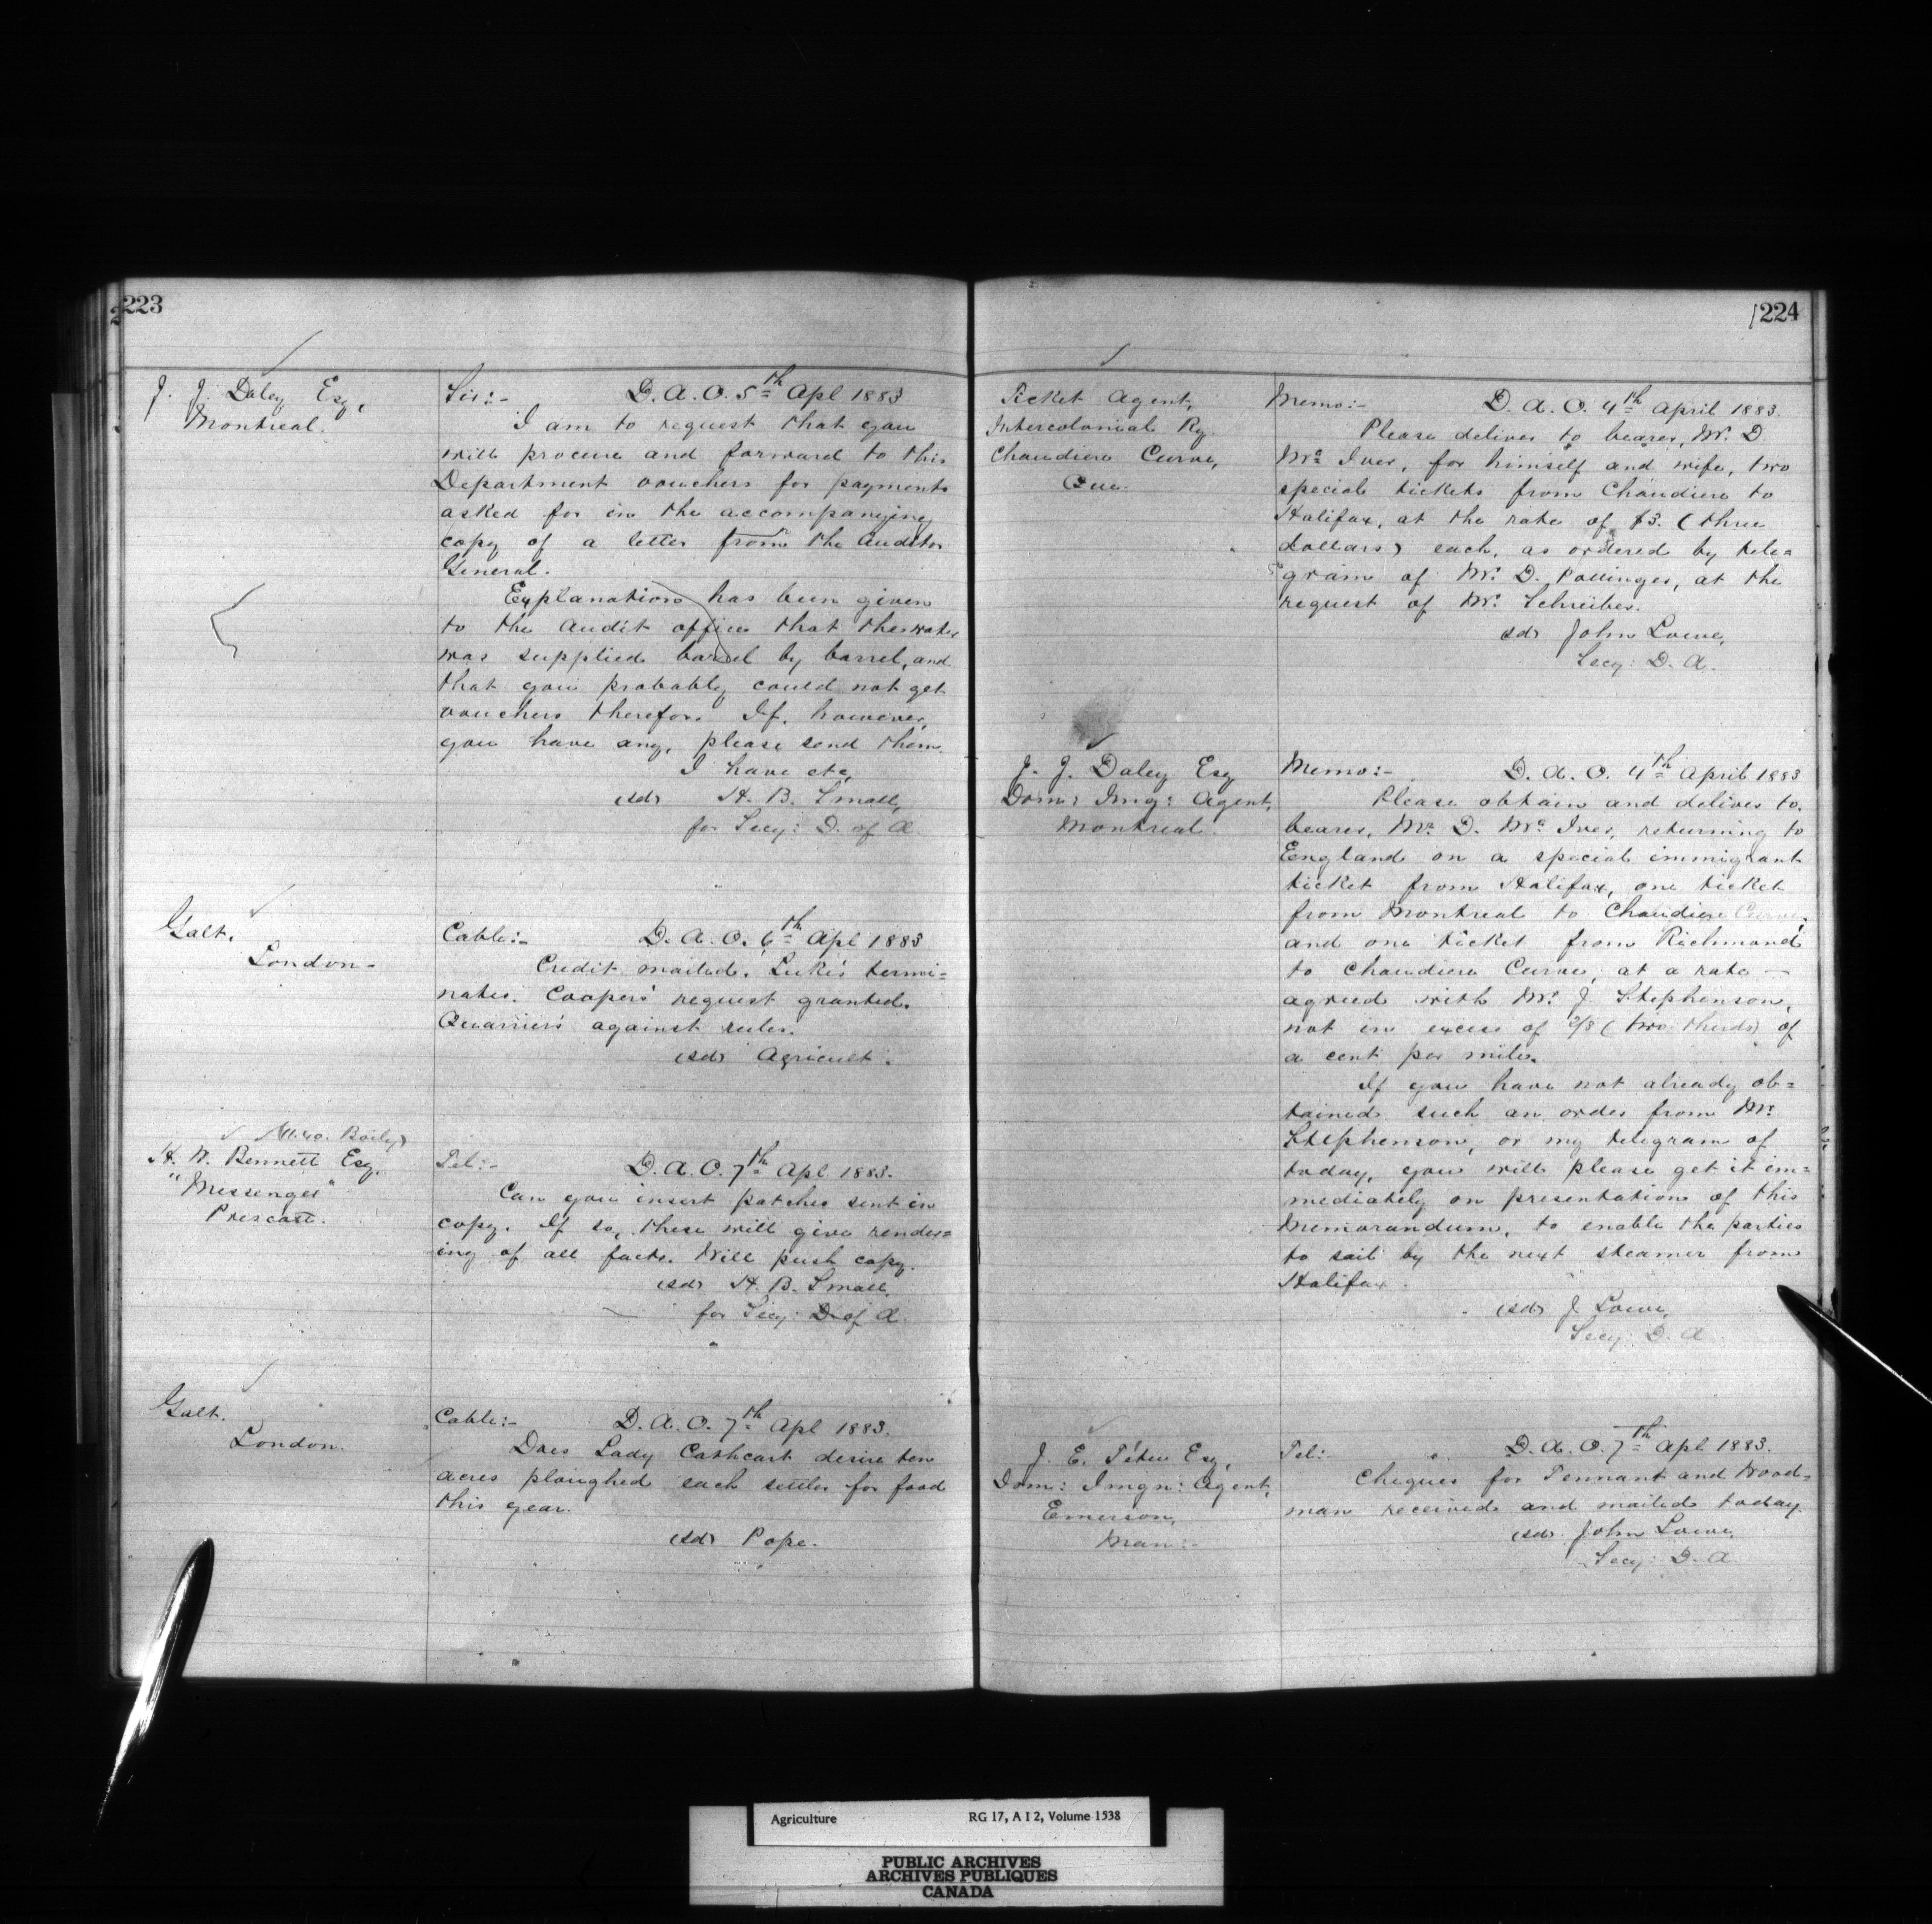 223
J. J. Daley Esq,
Montreal.
Sir:- D. A. O. 5th Apl 1883
I am to request that you
will procure and forward to this
Department vouchers for payments
asked for in the accompanying
copy of a letter from the Auditor
General.
Explanation has been given
to the Audit officer that the water
was supplied barrel by barrel, and
that you probably could not get
vouchers therefor. If, however,
you have any, please send them.
I have etc,
(sd) H. B. Small,
for Secy: D. of A.
Galt.
London-
Cable:- D. A. O. 6th Apl 1883
Credit mailed. Luke's termi=
nates. Coopers' request granted.
Quarrier's against rules.
(sd) Agricult.
H. W. Bennett Esq.
"Messenger"
Prescott.
Tel:- D. A. O. 7th Apl 1883.
Can you insert patches sent in
copy. If so, these will give render=
ing of all facts. Will push copy.
(sd) H. B. Small,
for Secy: D. of A.
Galt.
London.
Cable:- D. A. O. 7th Apl 1883.
Does Lady Cathcart desire ten
acres ploughed each settler for food
this year.
(sd) Pope.
224
Ticket Agent,
Intercolonial Ry.
Chaudiere Curve,
Que.
Memo:- D. A. O. 4th April 1883.
Please deliver to bearer, Mr. D.
Mc Iver, for himself and wife, two
special tickets from Chaudiere to
Halifax, at the rate of $3. (three
dollars) each, as ordered by tele=
gram of Mr. D. Pottinger, at the
request of Mr. Schreiber.
(sd) John Lowe,
Secy: D. A.
J. J. Daley Esq
Dom: Img: Agent,
Montreal.
Memo:- D. A. O. 4th April 1883
Please obtain and deliver to
bearer, Mr. D. Mc Iver, returning to
England on a special immigrant
ticket from Halifax, one ticket
from Montreal to Chaudiere Curve,
and one ticket from Richmond
to Chaudiere Curve, at a rate —
agreed with Mr. J. Stephenson,
not in excess of 2/3 (two thirds) of
a cent per mile.
If you have not already ob=
tained such an order from Mr.
Stephenson, or my telegram of
today, you will please get it im=
mediately on presentation of this
Memorandum, to enable the parties
to sail by the next steamer from
Halifax.
(sd) J. Lowe,
Secy: D. A.
J. E. Tétu Esq,
Dom: Imgn: Agent,
Emerson,
Man:-
Tel: D. A. O. 7th Apl 1883.
Cheques for Tennant and Wood=
man received and mailed today.
(sd) John Lowe,
Secy: D. A.
Agriculture RG 17, A I 2, Volume 1538
PUBLIC ARCHIVES
ARCHIVES PUBLIQUES
CANADA